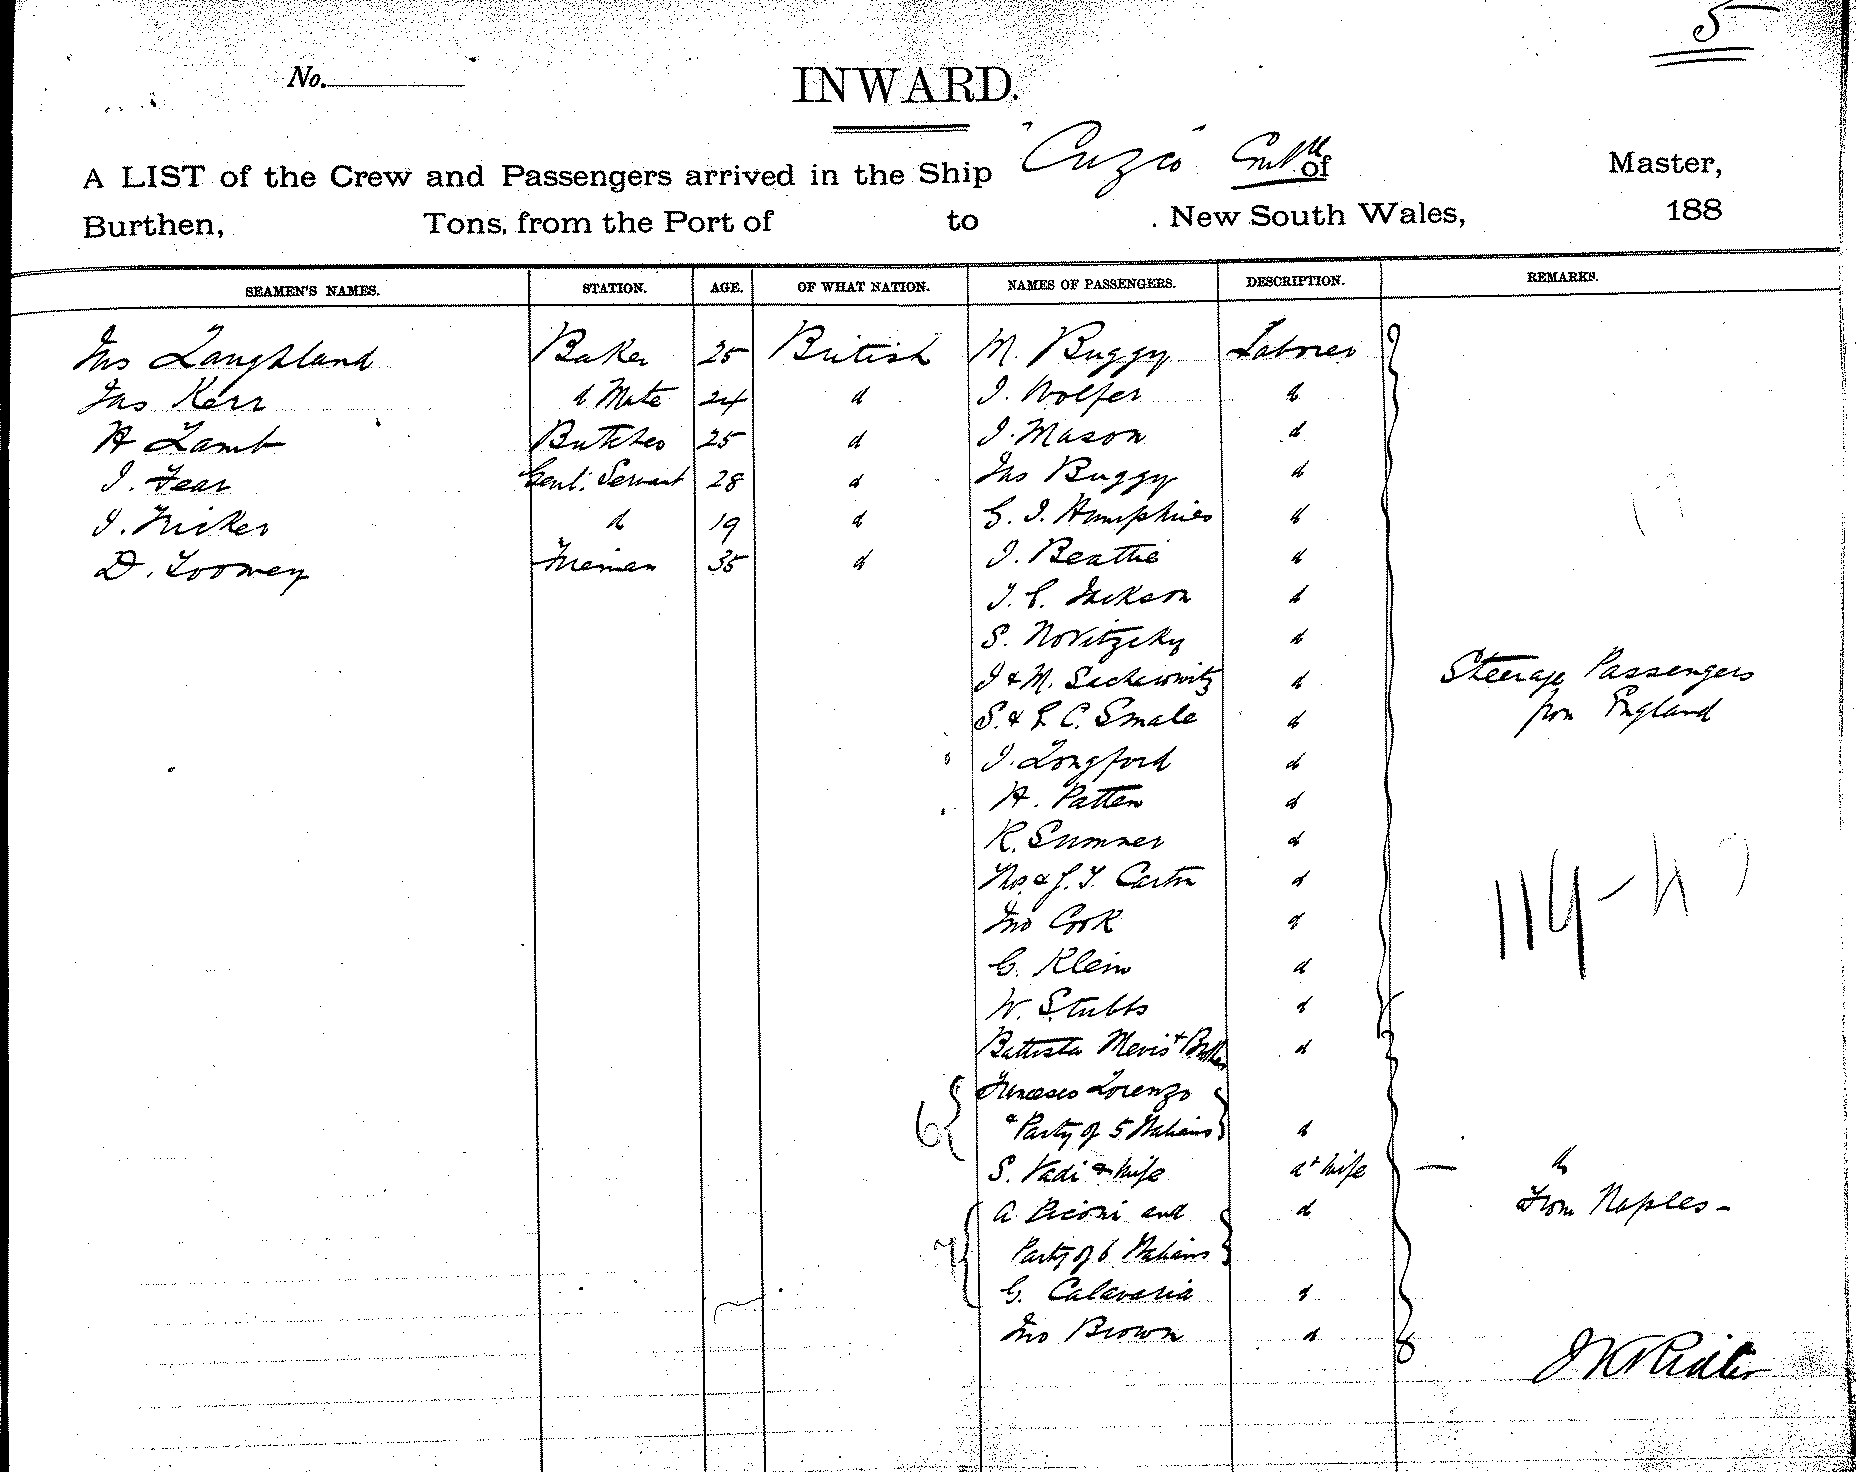 5
No.
INWARD.
A LIST of the Crew and Passengers arrived in the Ship "Cuzco" of Master,
Burthen, Tons, from the Port of to New South Wales, 188
SEAMEN'S NAMES. STATION. AGE. OF WHAT NATION. NAMES OF PASSENGERS. DESCRIPTION. REMARKS.
Jas Laughland Baker 25 British M. Buggy Laborer
Jas Kerr d Mate 24 d J. Wolfer d
A Lamb Butcher 25 d J. Mason d
J. Fear Genl. Servant 28 d Jas Buggy d
J. Fricker d 19 d G. J. Humphries d
D. Toomey Fireman 35 d J. Beattie d
J. C. Jackson d
S. Novitzcky d
J & M. Sacherowitz d
S. & E. C. Smale d
Steerage Passengers
from England
J. Longford d
H. Patten d
R. Sumner d
& J. T. Carter d
Jno Cook d
114
C. Klein d
W. Stubbs d
Battista Mevis & Brother d
Francesco Lorenzo
6 & Party of 5 Italians d
S. Vadi & Wife d & Wife — d
From Naples -
A Piconi and d
7 Party of 6 Italians
C. Calavaria d
Jno Brown d